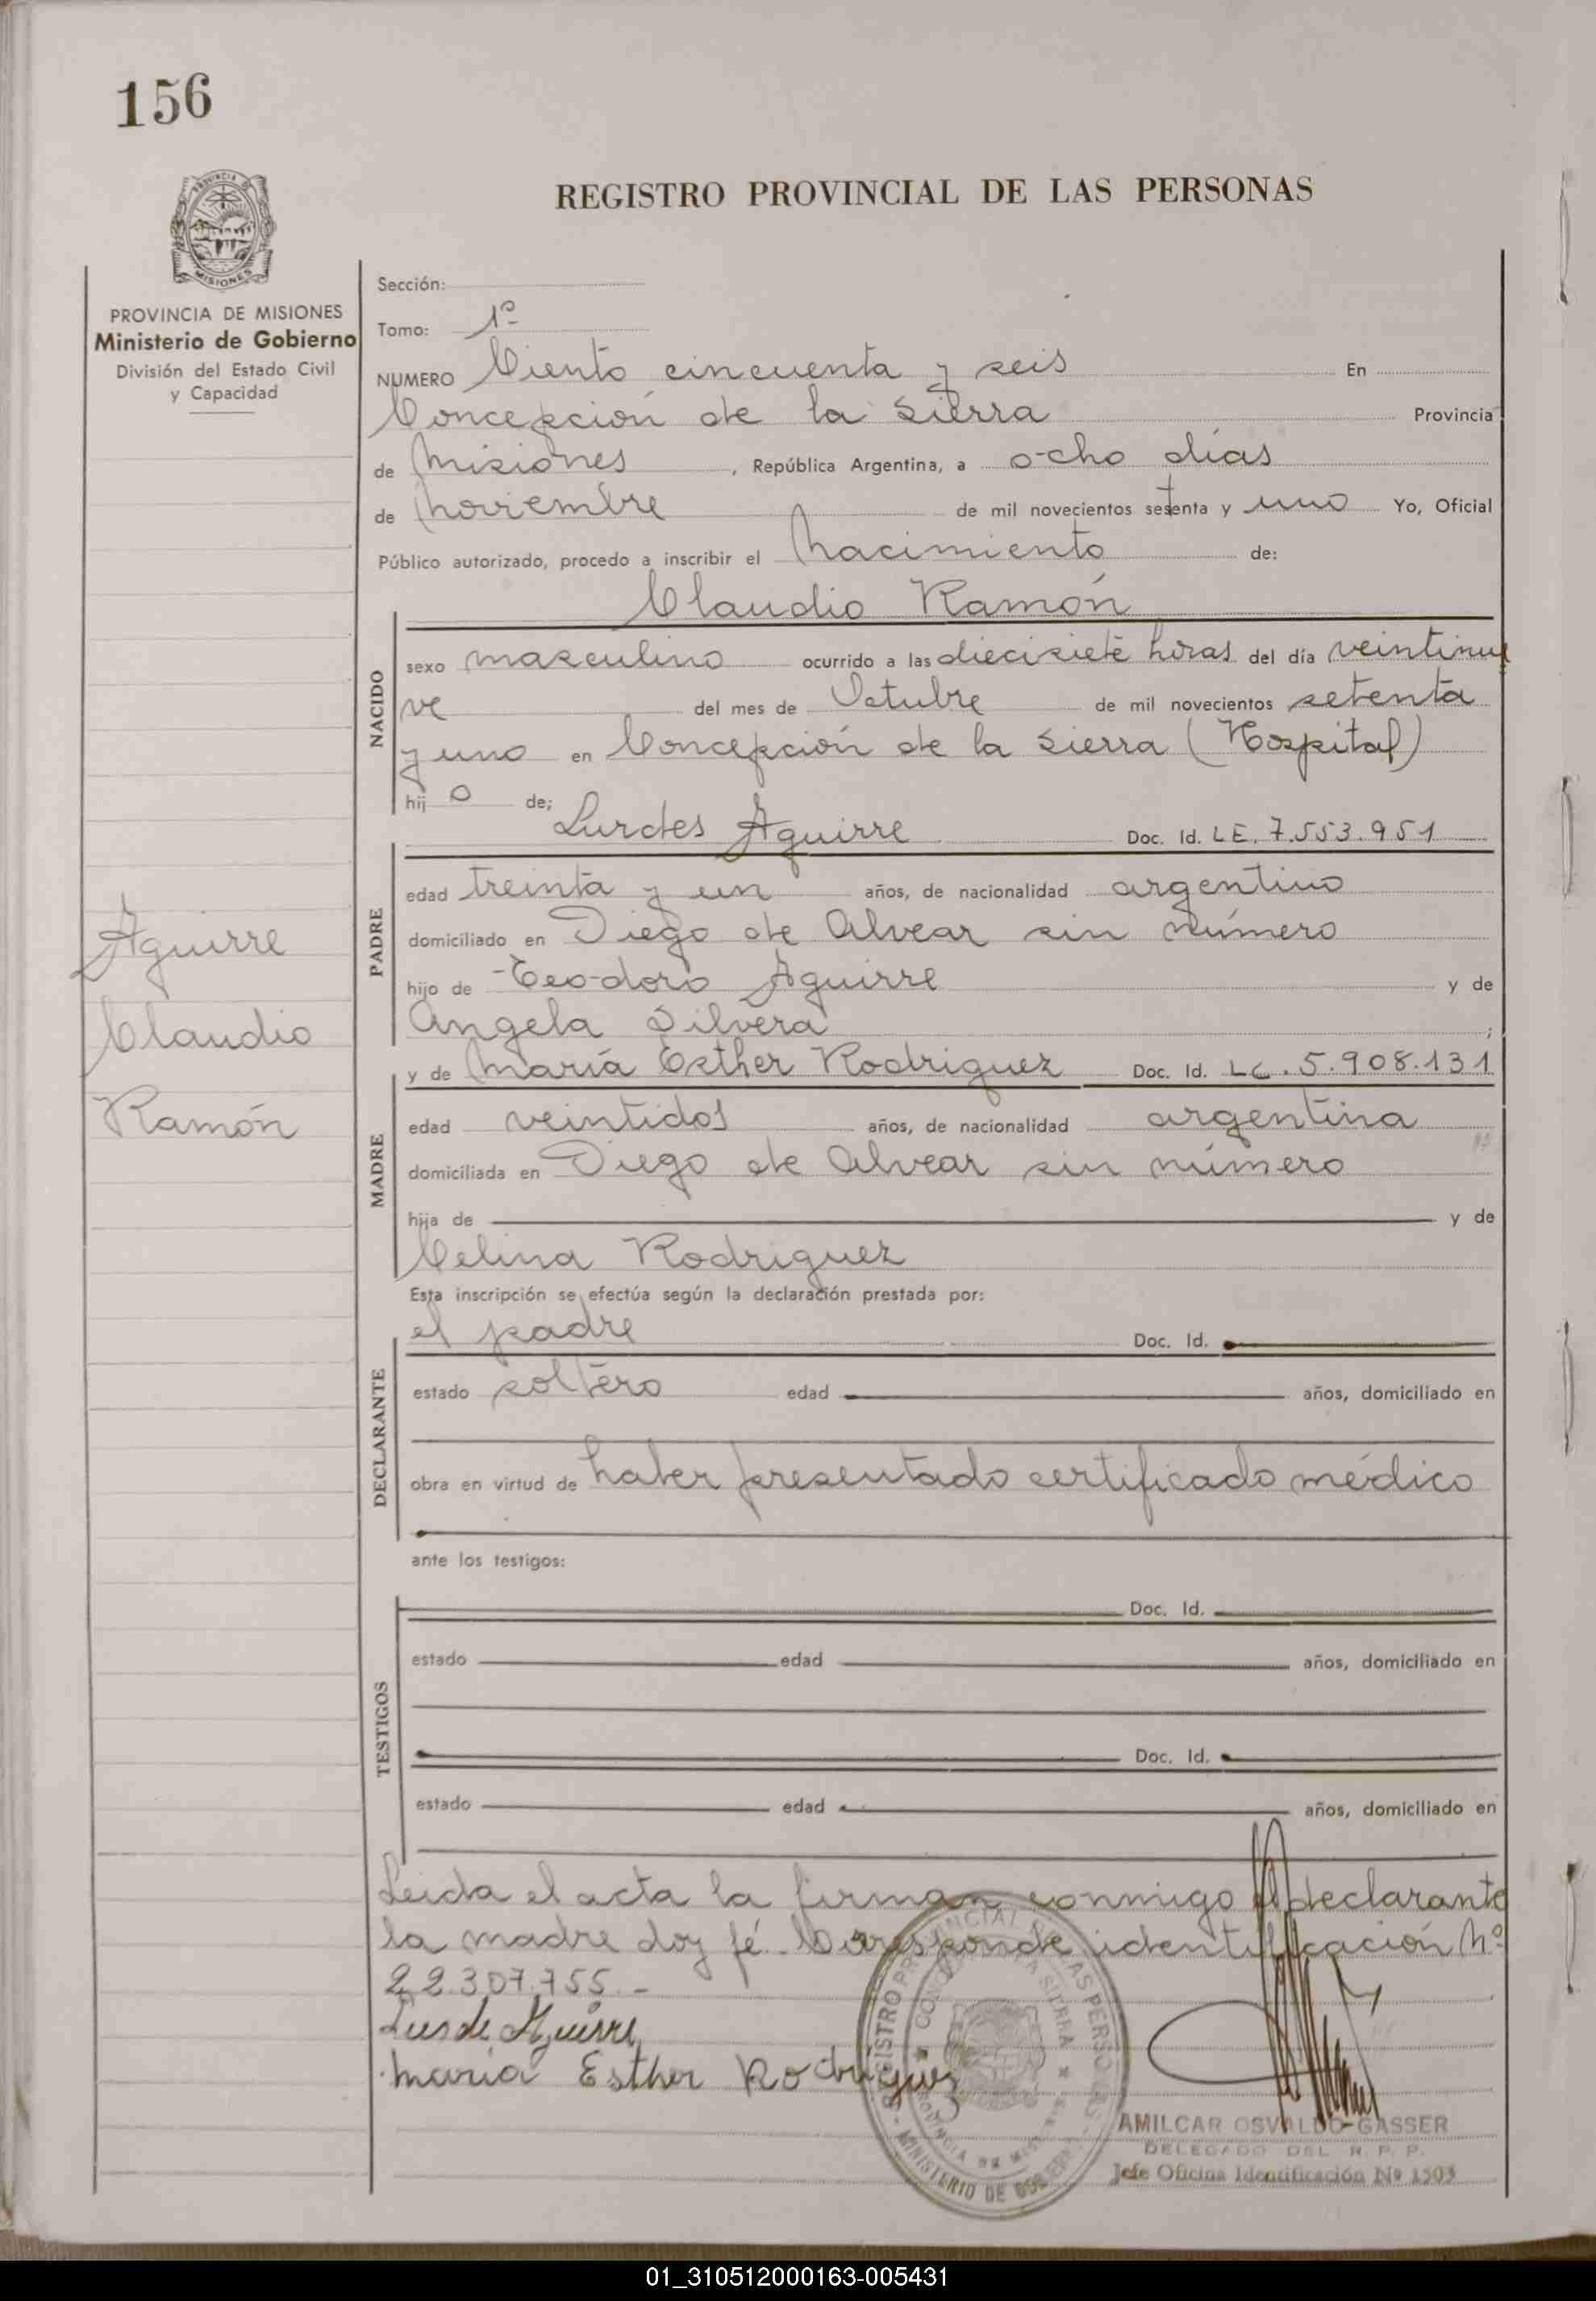 156
REGISTRO PROVINCIAL DE LAS PERSONAS
PROVINCIA DE MISIONES
Ministerio de Gobierno
División del Estado Civil
y Capacidad
Sección:
Tomo: 1º
NUMERO Ciento cincuenta y seis En
Concepción de la Sierra Provincia
de Misiones, República Argentina, a ocho días
de Noviembre de mil novecientos setenta y uno Yo, Oficial
Público autorizado, procedo a inscribir el Nacimiento de:
Claudio Ramón
NACIDO
sexo masculino ocurrido a las diecisiete horas del día veintinue
ve del mes de Octubre de mil novecientos setenta
y uno en Concepción de la Sierra (Hospital)
hij o de;
Lurdes Aguirre Doc. Id. LE. 7.553.951
PADRE
edad treinta y un años, de nacionalidad argentino
domiciliado en Diego de Alvear sin número
hijo de Teodoro Aguirre y de
Angela Silvera;
y de María Esther Rodriguez Doc. Id. LC. 5.908.131
MADRE
edad veintidos años, de nacionalidad argentina
domiciliada en Diego de Alvear sin número
hija de y de
Celina Rodriguez
Esta inscripción se efectúa según la declaración prestada por:
el padre Doc. Id.
DECLARANTE
estado soltero edad años, domiciliado en
obra en virtud de haber presentado certificado médico
ante los testigos:
TESTIGOS
Doc. Id.
estado edad años, domiciliado en
Doc. Id.
estado edad años, domiciliado en
Leida el acta la firman conmigo el declarante
la madre doy fé. Corresponde identificación Nº
22.307.755.-
Aguirre
Maria Esther Rodriguez
Aguirre
Claudio
Ramón
REGISTRO PROVINCIAL DE LAS PERSONAS - MINISTERIO DE GOBIERNO
CONCEPCION DE LA SIERRA
PROVINCIA DE MISIONES
AMILCAR OSVALDO GASSER
DELEGADO DEL R. P. P.
Jefe Oficina Identificación Nº 1503
01_310512000163-005431